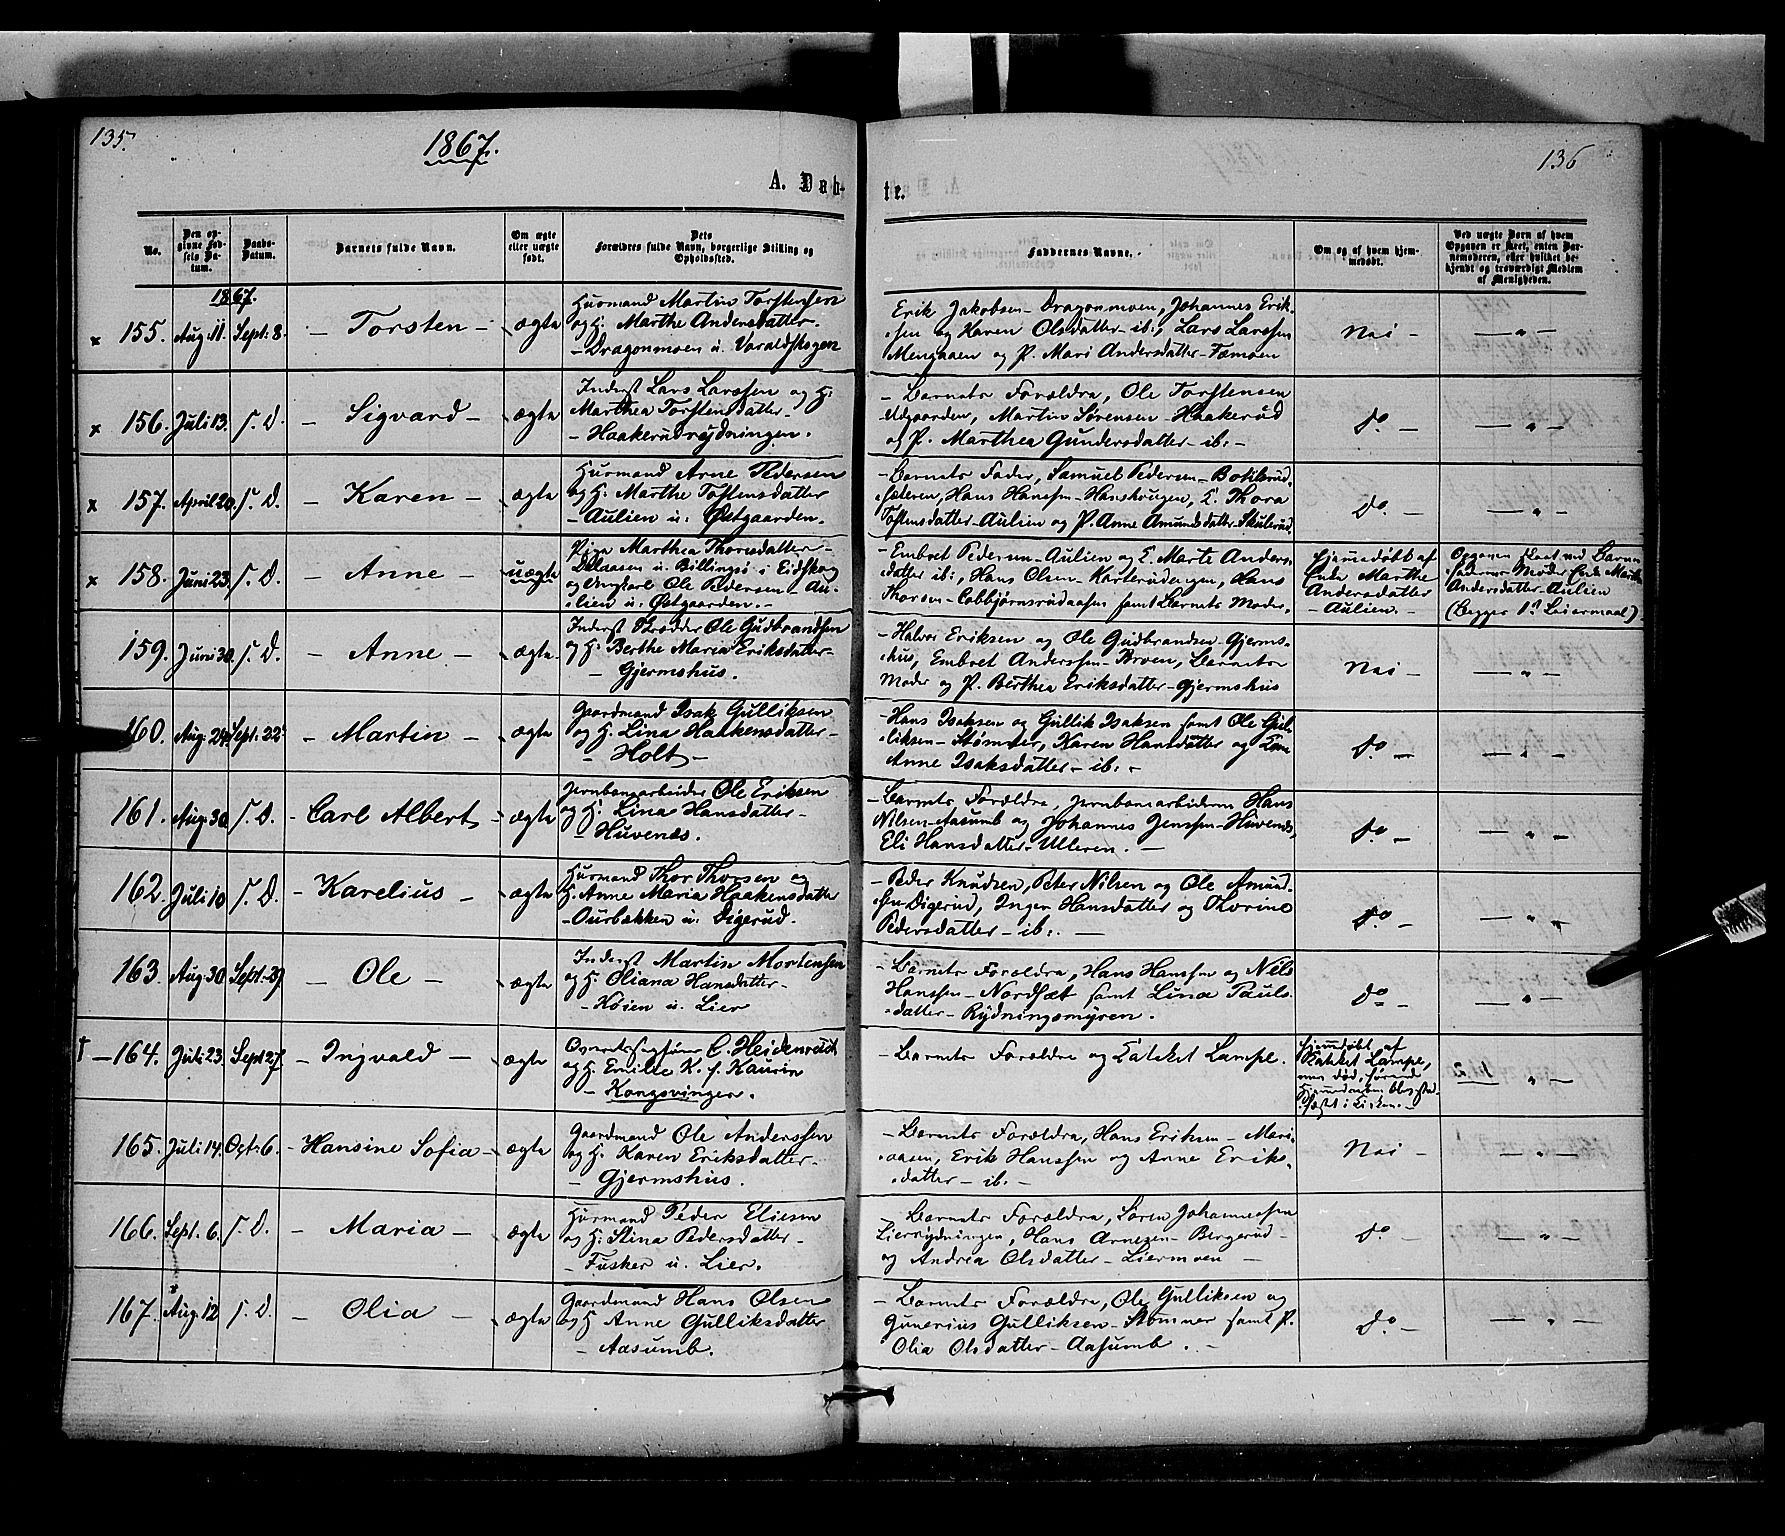 135.
1867.
A. Døb-
No.
Den opgivne Fødsels Datum.
Daabs-Datum.
Barnets fulde Navn.
Om ægte eller uægte født.
Dets Forældres fulde Navn, borgerlige Stilling og Opholdssted.
1867.
x 155. Aug. 11. Sept. 8. – Torsten – ægte
Husmand Martin Torstensen
og H. Marthe Andersdatter.
– Dragonmoen u. Varaldskogen
x 156. Juli 13. s. D. – Sigvard – ægte
Inderst Lars Larssen og H.
Marthea Torstensdatter –
– Haakerudrydningen.
x 157. April 20. s. D. – Karen – ægte
Husmand Arne Pedersen
og H. Marthe Tostensdatter
– Aulien u: Østgaarden.
x 158. Juni 23. s. D. – Anne – uægte
Pige Marthea Thorsdatter –
u. Billingsø i Eidskog
og Ungkarl Ole Pedersen – Au-
lien u: Østgaarden. –
159. Juni 30. s. D. – Anne – ægte
Inderst Skrædder Ole Gudbrandsen
og H. Berthe Maria Eriksdatter –
– Gjermshus.
160. Aug. 24. Sept. 22. – Martin – ægte
Gaardmand Isak Gulliksen
og H. Lina Haakensdatter –
– Holt –
161. Aug. 30. s. D. – Carl Albert – ægte
Jernbanearbeider Ole Eriksen
og H. Lina Hansdatter –
– Huvenæs.
162. Juli 10. s. D. – Karelius – ægte
Husmand Thor Thorsen og
H. Anne Maria Haakensdatter
– Ourbækken u: Digerud.
163. Aug. 30. Sept. 29. – Ole – ægte
Inderst Martin Mortensen
og H. Oliana Hansdatter –
– Høien u. Lier
† – 164. Juli 23. Sept 27. – Ingvald – ægte
C. Heidenreich
og H. Emilie K. f. Kaurin
– Kongsvinger.
165. Juli 14. Oct. 6. – Hansine Sofia – ægte
Gaardmand Ole Anderssen
og H. Karen Eriksdatter –
– Gjermshus.
166. Sept. 6. s. D. – Maria – ægte
Husmand Peder Eliesen
og H. Stina Pedersdatter –
– Fusker u. Lier.
167. Aug. 12 s. D. – Olia – ægte
Gaardmand Hans Olsen
og H Anne Gulliksdatter
– Aasumb.
136
te.
Faddernes Navne.
Om og af hvem hjemmedøbt.
Ved uægte Børn af hvem Opgaven er skeet, enten Barnemoderen, eller hvilket bekjendt og troværdigt Medlem af Menigheden.
Erik Jakobsen – Dragonmoen, Johannes Erik-
sen og Karen Olsdatter ib:, Lars Larssen
Mengaaen og P. Mari Andersdatter – Tæmoen
Nei – — „ —
– Barnets Forældre, Ole Torstensen
Udgaarden, Martin Sørensen – Haakerud
og P. Marthea Gundersdatter – ib: –
do. – — „ —
– Barnets Fader, Samuel Pedersen – Botilsrud-
sæteren, Hans Hanssen – Hanskrogen, E. Thora
Tostensdatter – Aulien og P. Anne Amundsdatter – Skulerud
do. – — „ —
– Embret Pedersen – Aulien og E. Marte Anders-
datter ib:, Hans Olsen – Karterudengen, Hans
Thorsen – Cobbjørnsrudaasen samt Barnets Moder.
Hjemmedøbt af
Enke Marthe
Andersdatter –
Aulien. –
Opgaven skeet ved Barne-
faderens Moder Enke Marthe
Andersdatter – Aulien
(Begges 1ste Leiermaal)
– Halvor Eriksen og Ole Gudbrandsen – Gjerms-
hus, Embret Anderssen – Broen, Barnets
Moder og P. Berthea Eriksdatter – Gjermshus
Nei – — „ —
– Hans Isaksen og Gullik Isaksen samt Ole Gul-
liksen – Stømner, Karen Hansdatter og
Anne Isaksdatter – ib: –
do. – — „ —
– Barnets Forældre, Jernbanearbeiderne Hans
Nilsen – Aasumb og Johannes Jenssen – Huvenæs,
Eli Hansdatter – Ulleren. –
do. – — „ —
– Peder Knudsen, Peter Nilsen og Ole Amund-
sen Digerud, Inger Hansdatter og Thorine
Pedersdatter – ib:. –
do. – — „ —
– Barnets Forældre, Hans Hanssen og Nils
Hanssen – Nordsæt samt Lina Pauls-
datter – Rydningsmyren.
do – — „ —
– Barnets Forældre og Lampe.
Hjemmedøbt af
Lampe,
men død, førend
– 12 „ —
– Barnets Forældre, Hans Eriksen – Mari-
aasen, Erik Hanssen og Anne Eriks-
datter – ib. –
Nei – — „ —
– Barnets Forældre, Søren Johannessen
Lierrydningen, Hans Arnesen – Bergerud –
og Andrea Olsdatter – Liermoen –
do. – — „ —
– Barnets Forældre, Ole Gulliksen og
Gunerius Gulliksen – Stømner samt P.
Olia Olsdatter – Aasumb. –
do. – — „ —